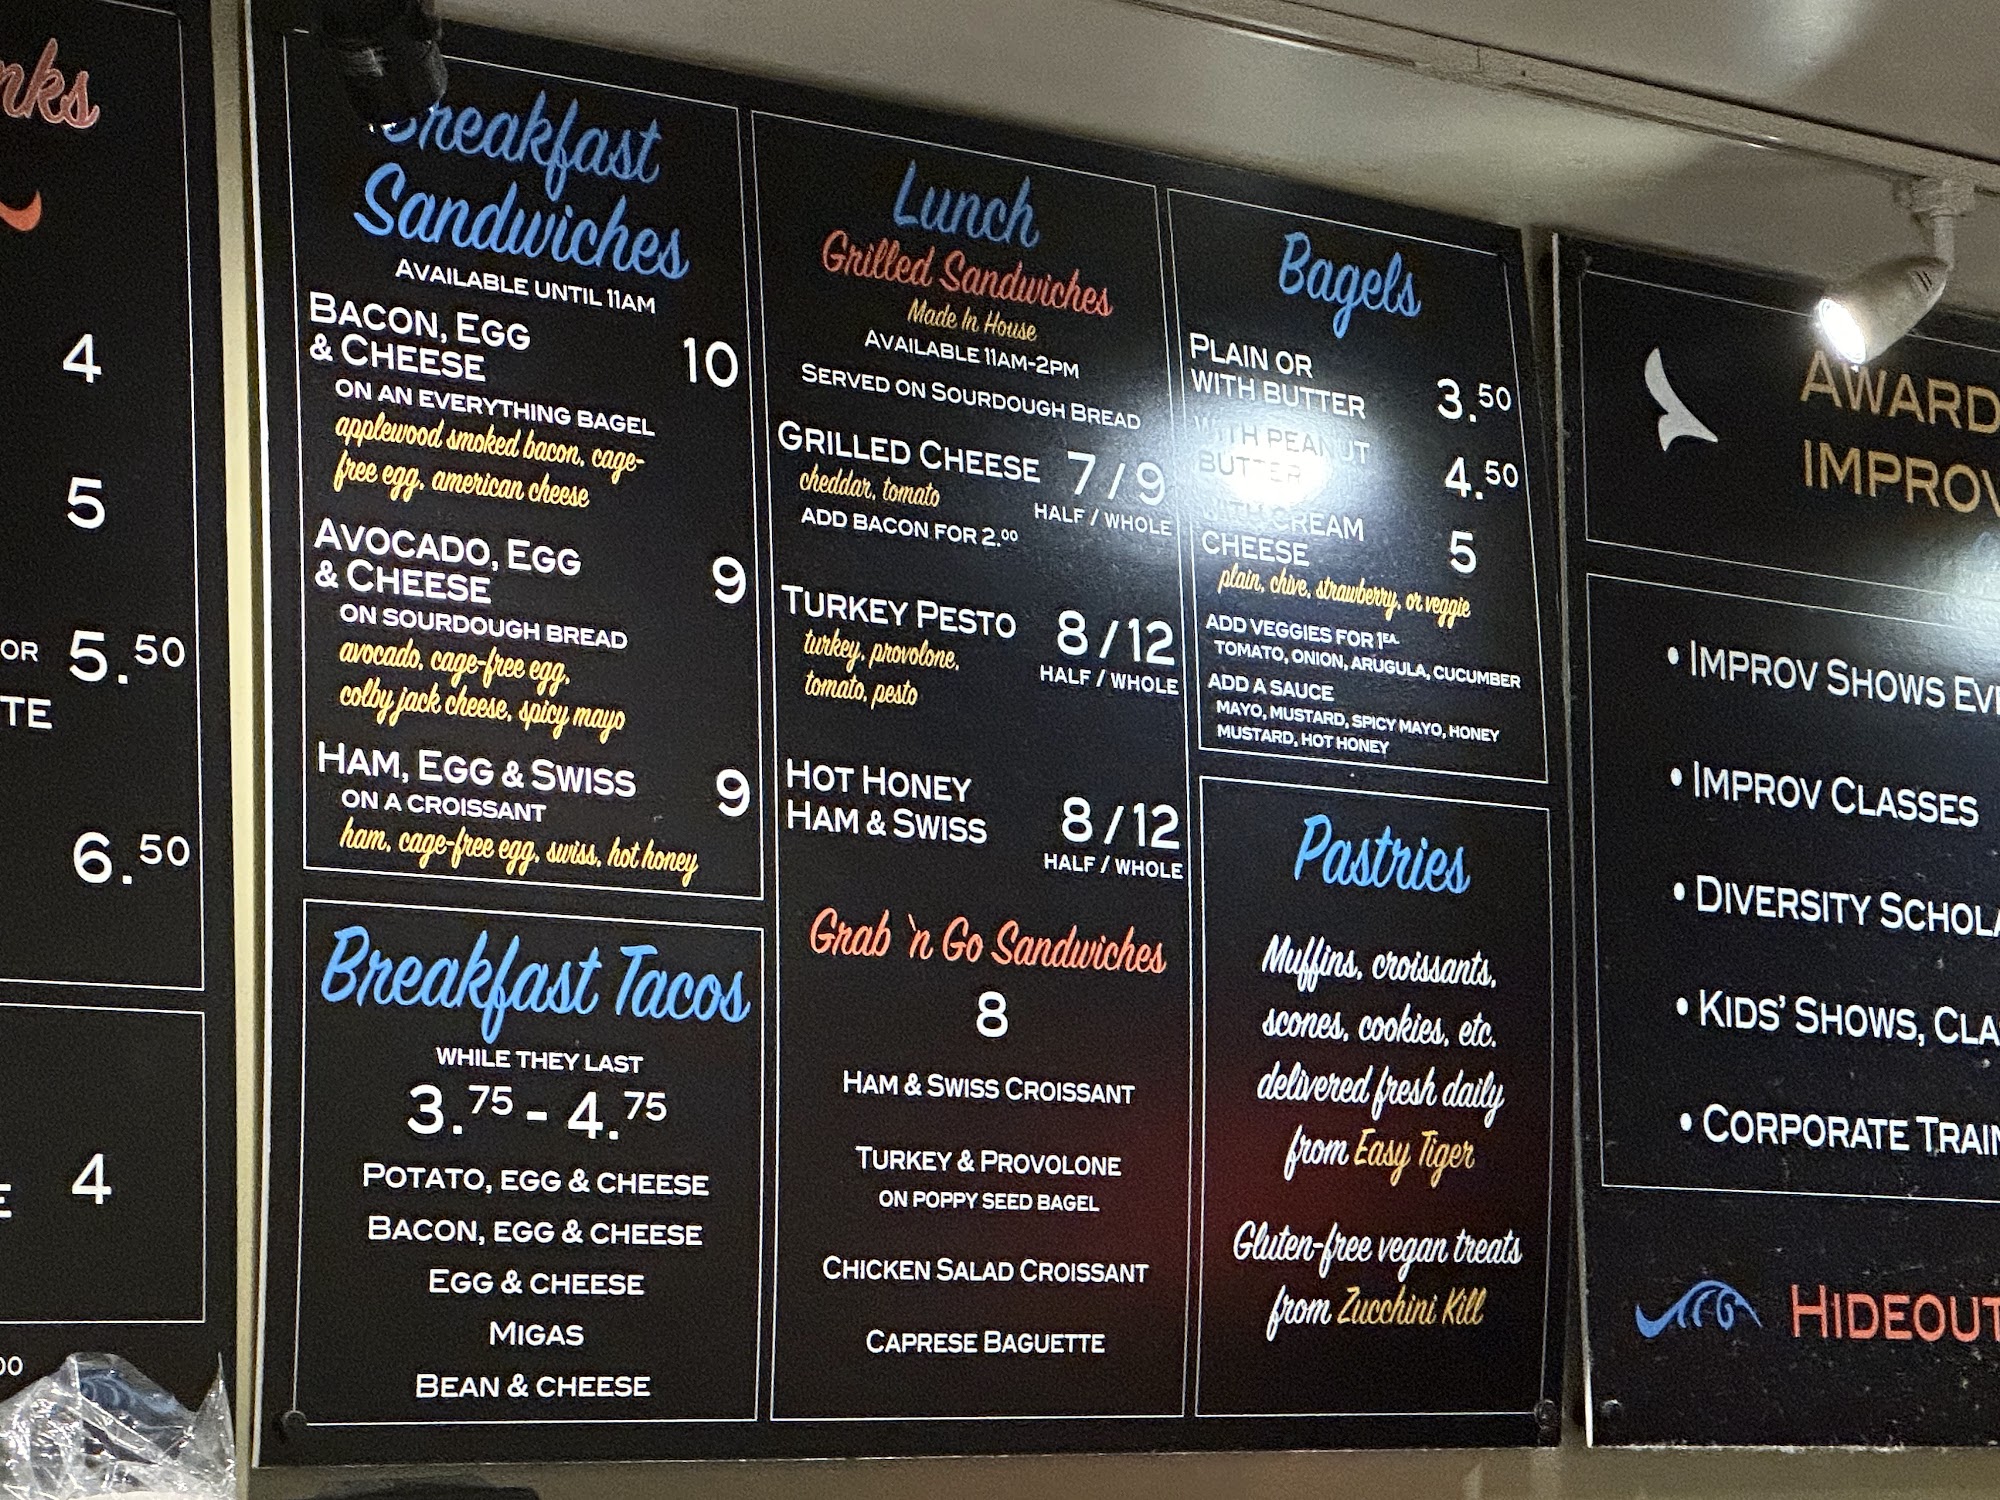 4
5
OR 5.50
TE
6.50
4
Breakfast
Sandwiches
AVAILABLE UNTIL 11AM
BACON, EGG
& CHEESE 10
ON AN EVERYTHING BAGEL
applewood smoked bacon, cage-
free egg, american cheese
AVOCADO, EGG
& CHEESE 9
ON SOURDOUGH BREAD
avocado, cage-free egg,
colby jack cheese, spicy mayo
HAM, EGG & SWISS 9
ON A CROISSANT
ham, cage-free egg, swiss, hot honey
Breakfast Tacos
WHILE THEY LAST
3.75 - 4.75
POTATO, EGG & CHEESE
BACON, EGG & CHEESE
EGG & CHEESE
MIGAS
BEAN & CHEESE
Lunch
Grilled Sandwiches
Made In House
AVAILABLE 11AM-2PM
SERVED ON SOURDOUGH BREAD
GRILLED CHEESE 7 / 9
cheddar, tomato HALF / WHOLE
ADD BACON FOR 2.00
TURKEY PESTO 8 / 12
turkey, provolone, HALF / WHOLE
tomato, pesto
HOT HONEY
HAM & SWISS 8 / 12
HALF / WHOLE
Grab 'n Go Sandwiches
8
HAM & SWISS CROISSANT
TURKEY & PROVOLONE
ON POPPY SEED BAGEL
CHICKEN SALAD CROISSANT
CAPRESE BAGUETTE
Bagels
PLAIN OR
WITH BUTTER 3.50
WITH PEANUT
BUTTER 4.50
WITH CREAM
CHEESE 5
plain, chive, strawberry, or veggie
ADD VEGGIES FOR 1EA.
TOMATO, ONION, ARUGULA, CUCUMBER
ADD A SAUCE
MAYO, MUSTARD, SPICY MAYO, HONEY
MUSTARD, HOT HONEY
Pastries
Muffins, croissants,
scones, cookies, etc.
delivered fresh daily
from Easy Tiger
Gluten-free vegan treats
from Zucchini Kill
AWARD
IMPROV
• IMPROV SHOWS EV
• IMPROV CLASSES
• DIVERSITY SCHOLA
• KIDS' SHOWS, CLA
• CORPORATE TRAIN
HIDEOUT